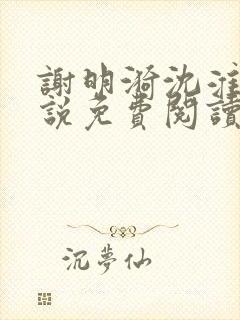 謝明漪沈淮
說免費閱讀
沉夢仙